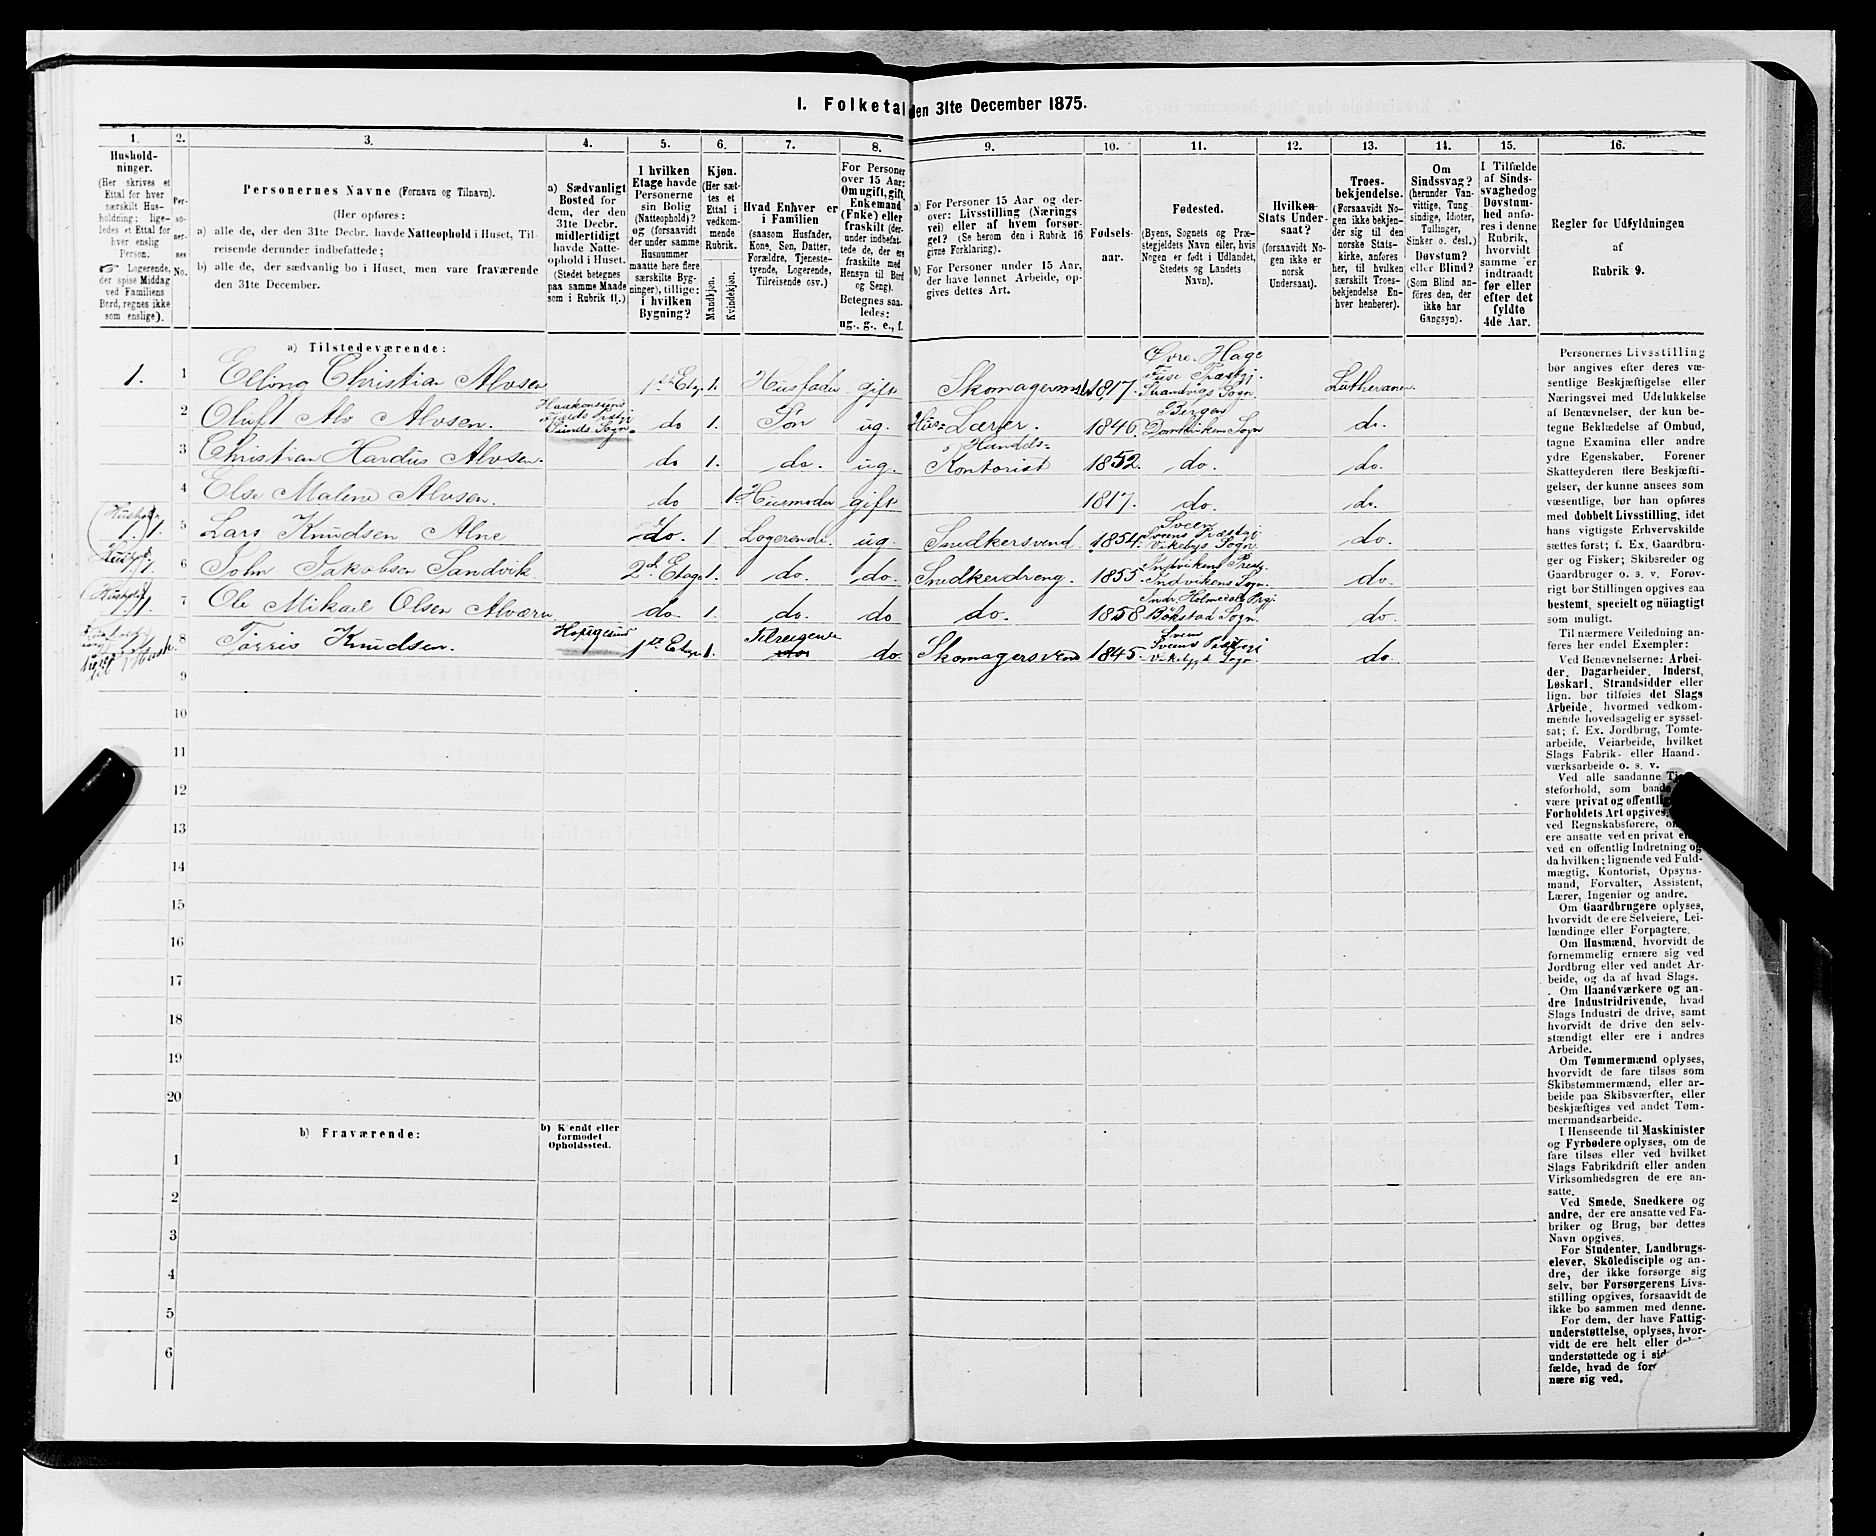 1. Folketal den 31te December 1875.
1. 2. 3. 4. 5. 6. 7. 8. 9. 10. 11. 12. 13. 14. 15. 16.
Hushold-
ninger.
(Her skrives et
Ettal for hver
særskilt Hus-
holdning; lige-
ledes et Ettal for
hver enslig
Person.
☞ Logerende,
der spise Middag
ved Familiens
Bord, regnes ikke
som enslige).
Per-
so-
ner-
nes
No.
Personernes Navne (Fornavn og Tilnavn).
(Her opføres:
a) alle de, der den 31te Decbr. havde Natteophold i Huset, Til-
reisende derunder indbefattede;
b) alle de, der sædvanlig bo i Huset, men vare fraværende
den 31te December.
a) Sædvanligt
Bosted for
dem, der den
31te Decbr.
midlertidigt
havde Natte-
ophold i Huset.
(Stedet betegnes
paa samme Maade
som i Rubrik 11.)
I hvilken
Etage havde
Personerne
sin Bolig
(Natteophold)?
og (forsaavidt
der under samme
Husnummer
maatte høre flere
særskilte Byg-
ninger), tillige:
i hvilken
Bygning?
Kjøn.
(Her sæt-
tes et
Ettal i
vedkom-
mende
Rubrik.
Mandkjøn.
Kvindekjøn.
Hvad Enhver er
i Familien
(saasom Husfader,
Kone, Søn, Datter,
Forældre, Tjeneste-
tyende, Logerende,
Tilreisende osv.)
For Personer
over 15 Aar:
Om ugift, gift,
Enkemand
(Enke) eller
fraskilt (der-
under indbefat-
tede de, der ere
fraskilte med
Hensyn til Bord
og Seng).
Betegnes saa-
ledes:
ug., g., e., f.
a) For Personer 15 Aar og der-
over: Livsstilling (Nærings-
vei) eller af hvem forsør-
get? (Se herom den i Rubrik 16
givne Forklaring).
b) For Personer under 15 Aar,
der have lønnet Arbeide, op-
gives dettes Art.
Fødsels-
aar.
Fødested.
(Byens, Sognets og Præ-
stegjeldets Navn eller, hvis
Nogen er født i Udlandet,
Stedets og Landets
Navn).
Hvilken
Stats Under-
saat?
(forsaavidt No-
gen ikke er
norsk
Undersaat).
Troes-
bekjendelse.
(Forsaavidt No-
gen ikke bekjen-
der sig til den
norske Stats-
kirke, anføres
her, til hvilken
særskilt Troes-
bekjendelse En-
hver henhører).
Om
Sindssvag?
(herunder Van-
vittige, Tung-
sindige, Idioter,
Tullinger,
Sinker o. desl.)
Døvstum?
eller Blind?
(Som Blind an-
føres den, der
ikke har
Gangsyn).
I Tilfælde
af Sinds-
svaghed og
Døvstum-
hed anfø-
res i denne
Rubrik,
hvorvidt
samme er
indtraadt
før eller
efter det
fyldte
4de Aar.
Regler for Udfyldningen
af
Rubrik 9.
a) Tilstedeværende:
1. 1 Elling Christian Alvsen 1ste Etage 1. Husfader gift Skomagermst. 1817. Øvre Hage Fuse Præstgj. Strandvigs Sogn. Lutheraner
2 Oluft Alv Alvsen. Haakonsund Fjelds Præstgj. Sunds Sogn. do 1. Søn ug. Hus-Lærer. 1846. Bergen Domkirkens Sogn do.
3 Christian Hardus Alvsen. do 1. do. ug. Handels-Kontorist 1852. do. do.
4 Else Malene Alvsen. do 1. Husmoder gift 1817. do. do.
1. 5 Lars Knudsen Alne do. 1 Logerende ug. Snedkersvend 1854. Sveen Sveens Præstgj. Vikebys Sogn. do.
1. 6 John Jakobsen Sandvik 2d. Etage 1. do. do. Snedkerdreng. 1855. Indvikens Prestg. Indvikens Sogn. do.
1. 7 Ole Mikael Olsen Alværn do. 1. do. do do. 1858 Indr. Holmedals Prgj. Bökstad Sogn. do.
8 Torris Knudsen. 1ste Etage 1. Tilreisende do. Skomagersvend 1845. Sveen Sveens Præstgj. Sogn. do.
9
10
11
12
13
14
15
16
17
18
19
20
b) Fraværende: b) Kjendt eller
formodet
Opholdssted.
1
2
3
4
5
6
Personernes Livsstilling
bør angives efter deres væ-
sentlige Beskjæftigelse eller
Næringsvei med Udelukkelse
af Benævnelser, der kun be-
tegne Beklædelse af Ombud,
tagne Examina eller andre
ydre Egenskaber. Forener
Skatteyderen flere Beskjæfti-
gelser, der kunne ansees som
væsentlige, bør han opføres
med dobbelt Livsstilling, idet
hans vigtigste Erhvervskilde
sættes først; f. Ex. Gaardbru-
ger og Fisker; Skibsreder og
Gaardbruger o. s. v. Forøv-
rigt bør Stillingen opgives saa
bestemt, specielt og nøiagtigt
som muligt.
Til nærmere Veiledning an-
føres her endel Exempler:
Ved Benævnelserne: Arbei-
der, Dagarbeider, Inderst,
Løskarl, Strandsidder eller
lign. bør tilføies det Slags
Arbeide, hvormed vedkom-
mende hovedsagelig er syssel-
sat; f. Ex. Jordbrug, Tomte-
arbeide, Veiarbeide, hvilket
Slags Fabrik- eller Haand-
værksarbeide o. s. v.
Ved alle saadanne
steforhold, som baade
være privat og offentlig
Forholdets Art opgives,
ved Regnskabsførere, om
ere ansatte ved en privat
ved en offentlig Indretning og
da hvilken; lignende ved Fuld-
mægtig, Kontorist, Opsyns-
mand, Forvalter, Assistent,
Lærer, Ingeniør og andre.
Om Gaardbrugere oplyses,
hvorvidt de ere Selveiere, Lei-
lændinge eller Forpagtere.
Om Husmænd, hvorvidt de
fornemmelig ernære sig ved
Jordbrug eller ved andet Ar-
beide, og da af hvad Slags.
Om Haandværkere og an-
dre Industridrivende, hvad
Slags Industri de drive, samt
hvorvidt de drive den selv-
stændigt eller ere i andres
Arbeide.
Om Tømmermænd oplyses,
hvorvidt de fare tilsøs som
Skibstømmermænd, eller ar-
beide paa Skibsværfter, eller
beskjæftiges ved andet Tøm-
mermandsarbeide.
I Henseende til Maskinister
og Fyrbødere oplyses, om de
fare tilsøs eller ved hvilket
Slags Fabrikdrift eller anden
Virksomhedsgren de ere an-
satte.
Ved Smede, Snedkere og
andre, der ere ansatte ved Fa-
briker og Brug, bør dettes
Navn opgives.
For Studenter, Landbrugs-
elever, Skoledisciple og an-
dre, der ikke forsørge sig
selv, bør Forsørgerens Livs-
stilling opgives, forsaavidt de
ikke bo sammen med denne.
For dem, der have Fattig-
understøttelse, oplyses, hvor-
vidt de ere helt eller
understøttede og i
fælde, hvad de
nære sig ved.